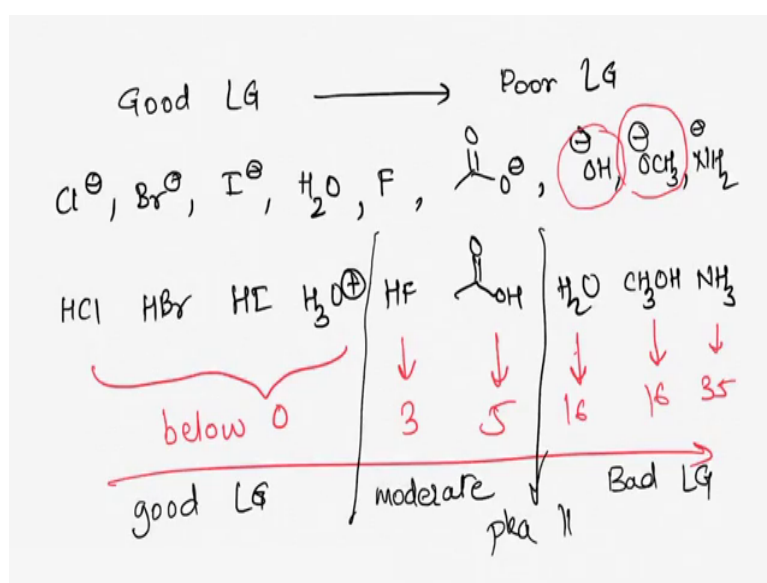 Good LG ⟶ Poor LG
Cl⊖, Br⊖, I⊖, H₂O, F, O O⊖, ⊖OH, ⊖OCH₃, ⊖NH₂
HCl HBr HI H₃O⊕ HF O OH H₂O CH₃OH NH₃
below 0 3 5 16 16 35
good LG moderate Bad LG
pka 11